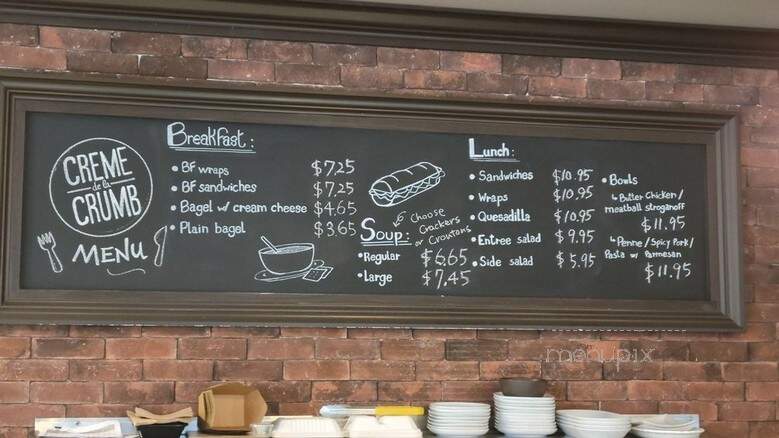 CREME
de la
CRUMB
MENU
Breakfast:
• BF wraps $7.25
• BF sandwiches $7.25
• Bagel w/ cream cheese $4.65
• Plain bagel $3.65
Soup:
Choose
Crackers
or Croutons
• Regular $6.65
• Large $7.45
Lunch:
• Sandwiches $10.95
• Wraps $10.95
• Quesadilla $10.95
• Entree salad $9.95
• Side salad $5.95
• Bowls
↳ Butter Chicken/
meatball stroganoff
$11.95
↳ Penne/Spicy Pork/
Pasta w/ Parmesan
$11.95
menupix